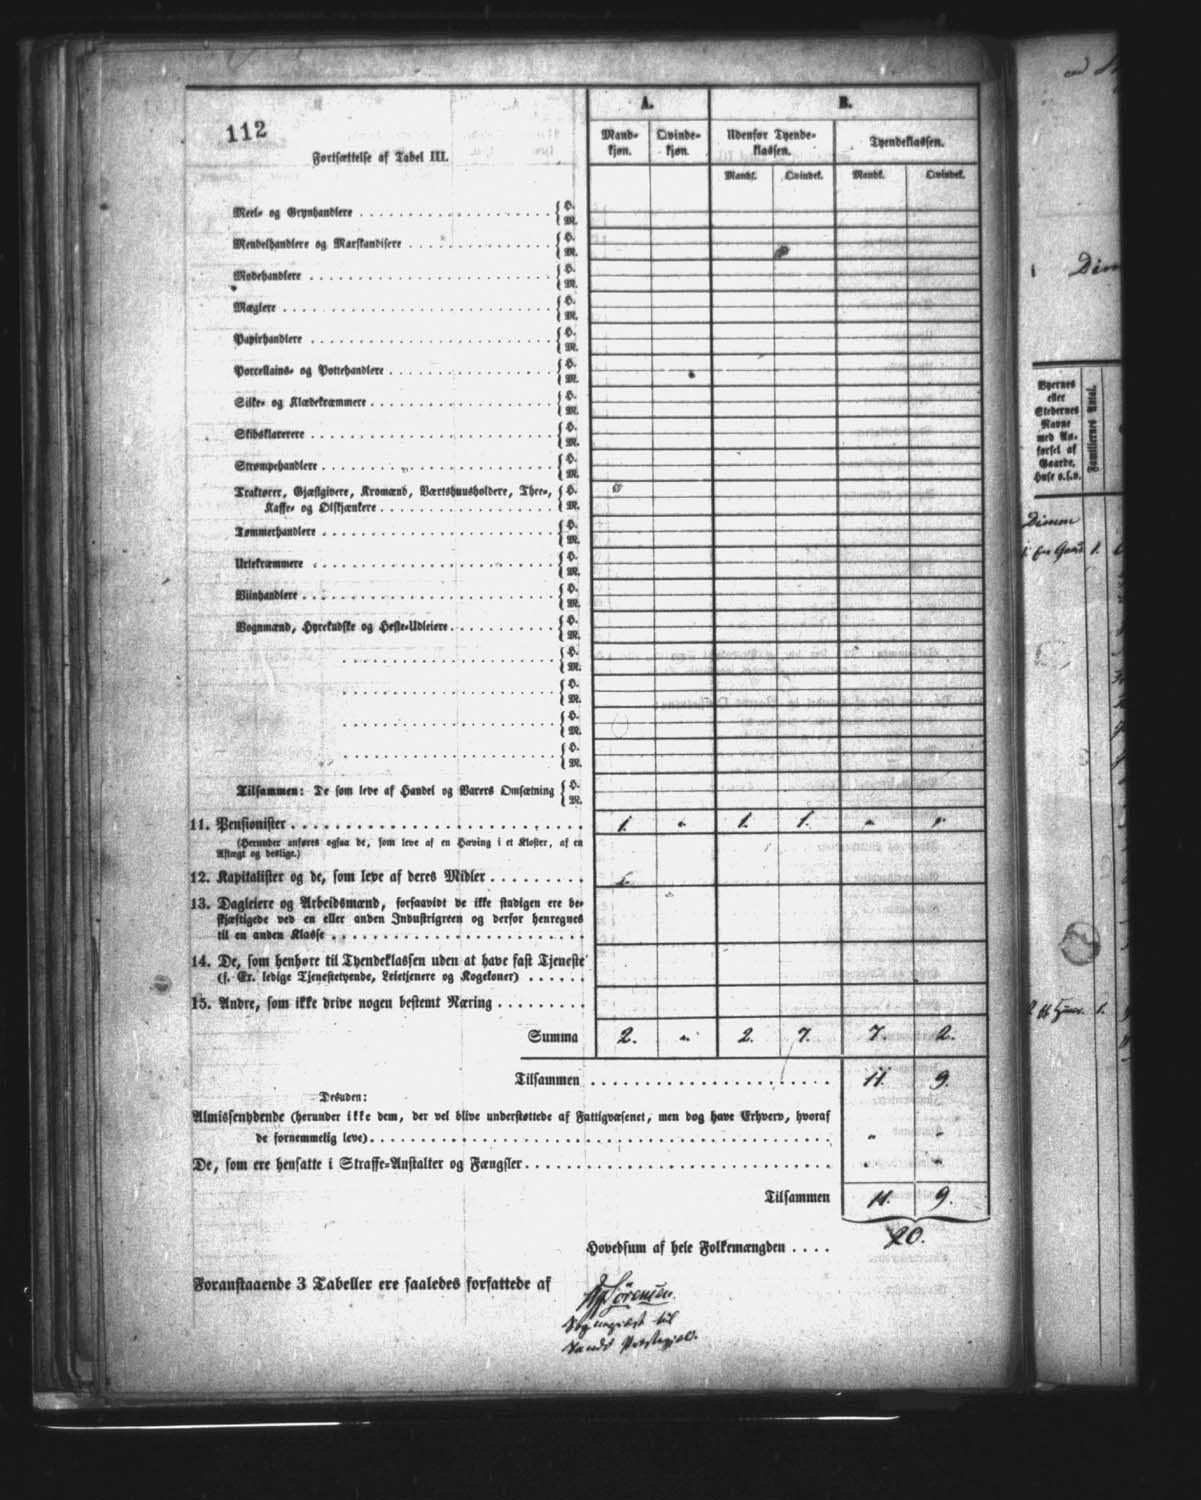 112
Fortsættelse af Tabel III.
A.
B.
Mand-
kjøn.
Qvinde-
kjøn.
Udenfor Tyende-
klassen.
Tyendeklassen.
Mandk.
Qvindek.
Mandk.
Qvindek.
Meel- og Grynhandlere { H.
M.
Meubelhandlere og Marskandisere { H.
M.
Modehandlere { H.
M.
Mæglere { H.
M.
Papirhandlere { H.
M.
Porcellains- og Pottehandlere { H.
M.
Silke- og Klædekræmmere { H.
M.
Skibsklarerere { H.
M.
Strømpehandlere { H.
M.
Traktører, Gjæstgivere, Kromænd, Værtshuusholdere, Thee-, { H.
Kaffe- og Ølskjænkere M.
Tømmerhandlere { H.
M.
Urtekræmmere { H.
M.
Viinhandlere { H.
M.
Vognmænd, Hyrekudske og Heste-Udleiere { H.
M.
{ H.
M.
{ H.
M.
{ H.
M.
{ H.
M.
Tilsammen: De som leve af Handel og Varers Omsætning { H.
M.
11. Pensionister 1. " 1. 1. " "
(Herunder anføres ogsaa de, som leve af en Hæving i et Kloster, af en
Aftægt og deslige.)
12. Kapitalister og de, som leve af deres Midler
13. Dagleiere og Arbeidsmænd, forsaavidt de ikke stadigen ere be-
skjæftigede ved en eller anden Industrigreen og derfor henregnes
til en anden Klasse
14. De, som henhøre til Tyendeklassen uden at have fast Tjeneste
(f. Ex. ledige Tjenestetyende, Leietjenere og Kogekoner)
15. Andre, som ikke drive nogen bestemt Næring
Summa 2. " 2. 7. 7. 2.
Tilsammen 11. 9.
Desuden:
Almissenydende (herunder ikke dem, der vel blive understøttede af Fattigvæsenet, men dog have Erhverv, hvoraf
de fornemmelig leve) " "
De, som ere hensatte i Straffe-Anstalter og Fængsler " "
Tilsammen 11. 9.
Hovedsum af hele Folkemængden 20.
Foranstaaende 3 Tabeller ere saaledes forfattede af
Sørensen.
Sognepræst til
Sands Præstegjeld.
Byernes
eller
Stedernes
Navne
med An-
førsel af
Gaarde,
Huse o.s.v.
Familiernes Antal.
Dimon